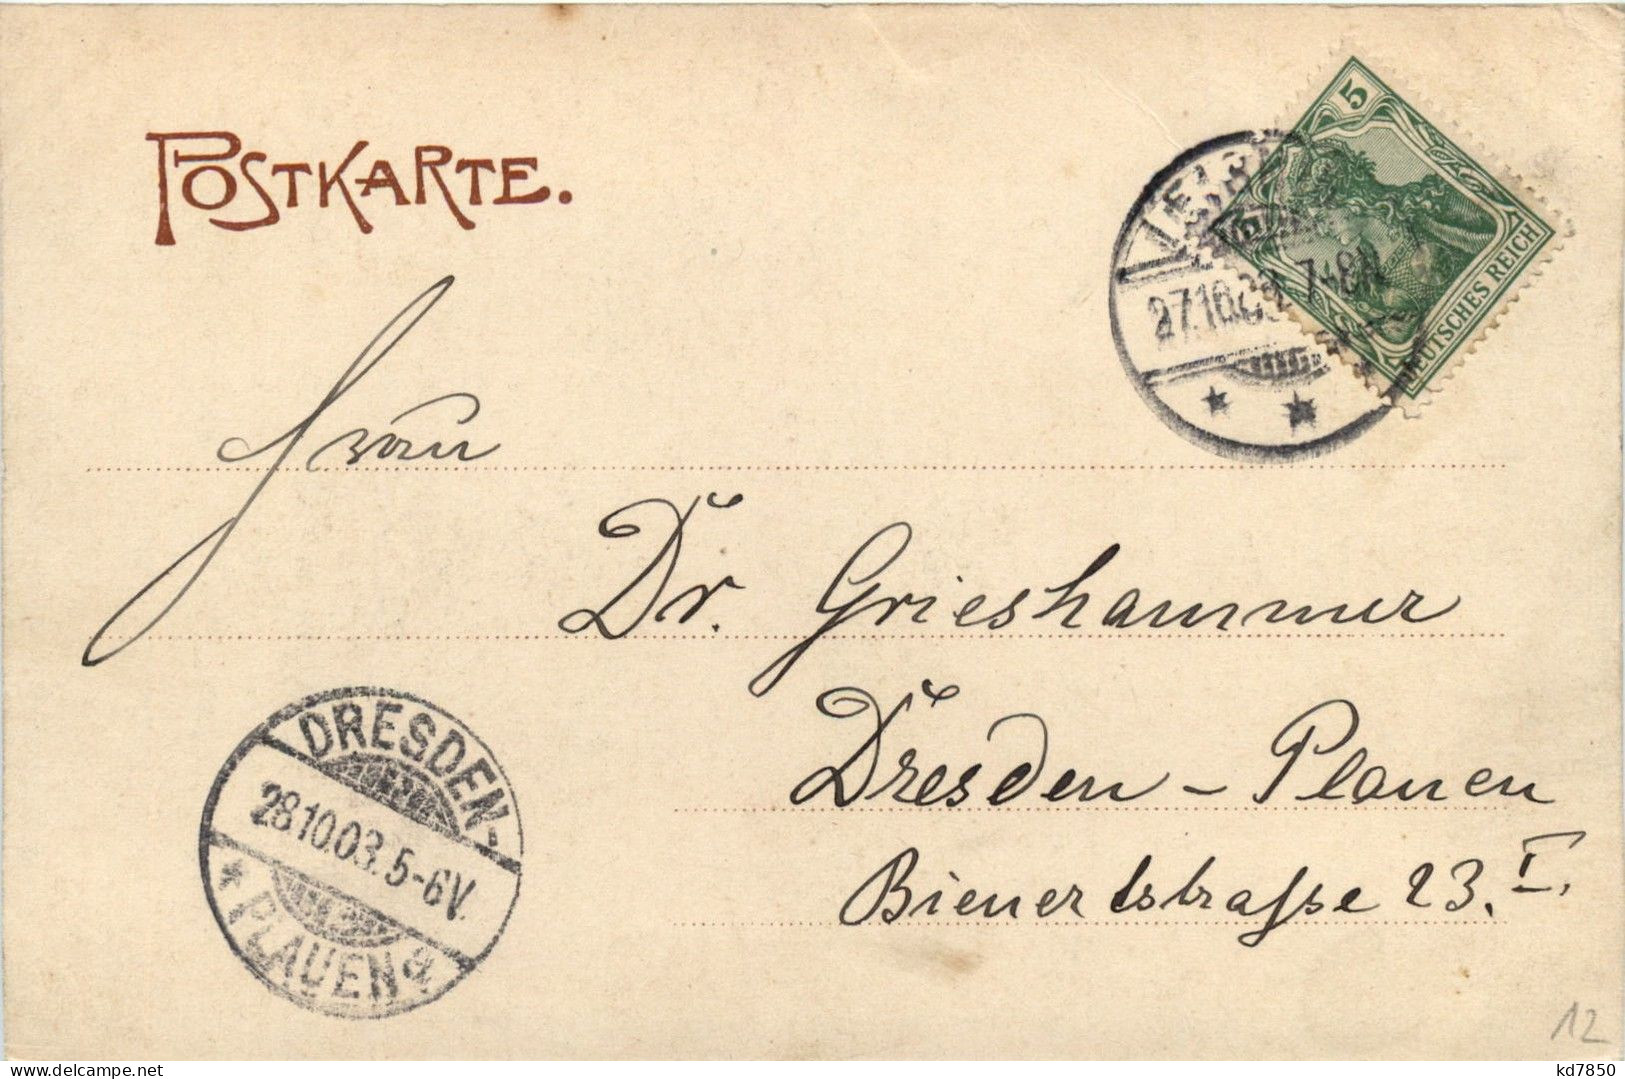 POSTKARTE.
5
DEUTSCHES REICH
27.10.03. 7-8N
Frau
Dr. Grieshammer
Dresden-Planen
Bienertstrasse 23. I.
DRESDEN-
28.10.03. 5-6V.
* PLAUEN
12
delcampe.net
kd7850